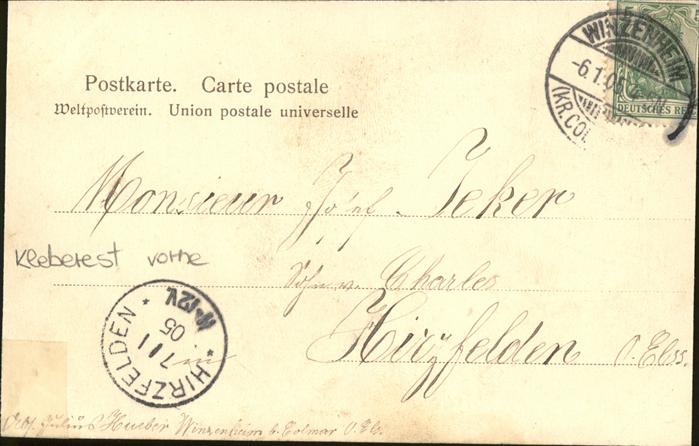 Postkarte. Carte postale
Weltpostverein. Union postale universelle
WINZENHEIM
-6.1.0
(KR.COL
DEUTSCHES REI
Monsieur Josef Jeker
Sohn v. Charles
Hirzfelden O. Elss.
Kleberest vorne
HIRZFELDEN
7 1 05
11-12V.
Julius Hueber Winzenheim b. Colmar O. Els.